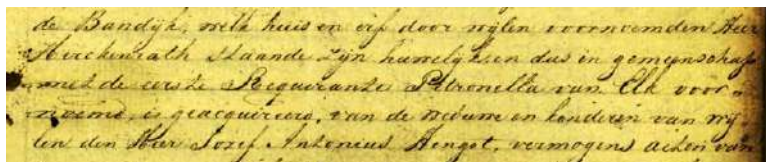 de Bandijk, welk huis en erf door wijlen voornoemden Heer
Herckenrath staande zijn huwelijk en dus in gemeenschap
met de eerste Requirante Petronella van Elk voor-
noemd, is geacquireerd, van de weduwe en kinderen van wij-
len den Heer Josef Antonius Hengot, vermogens acten van